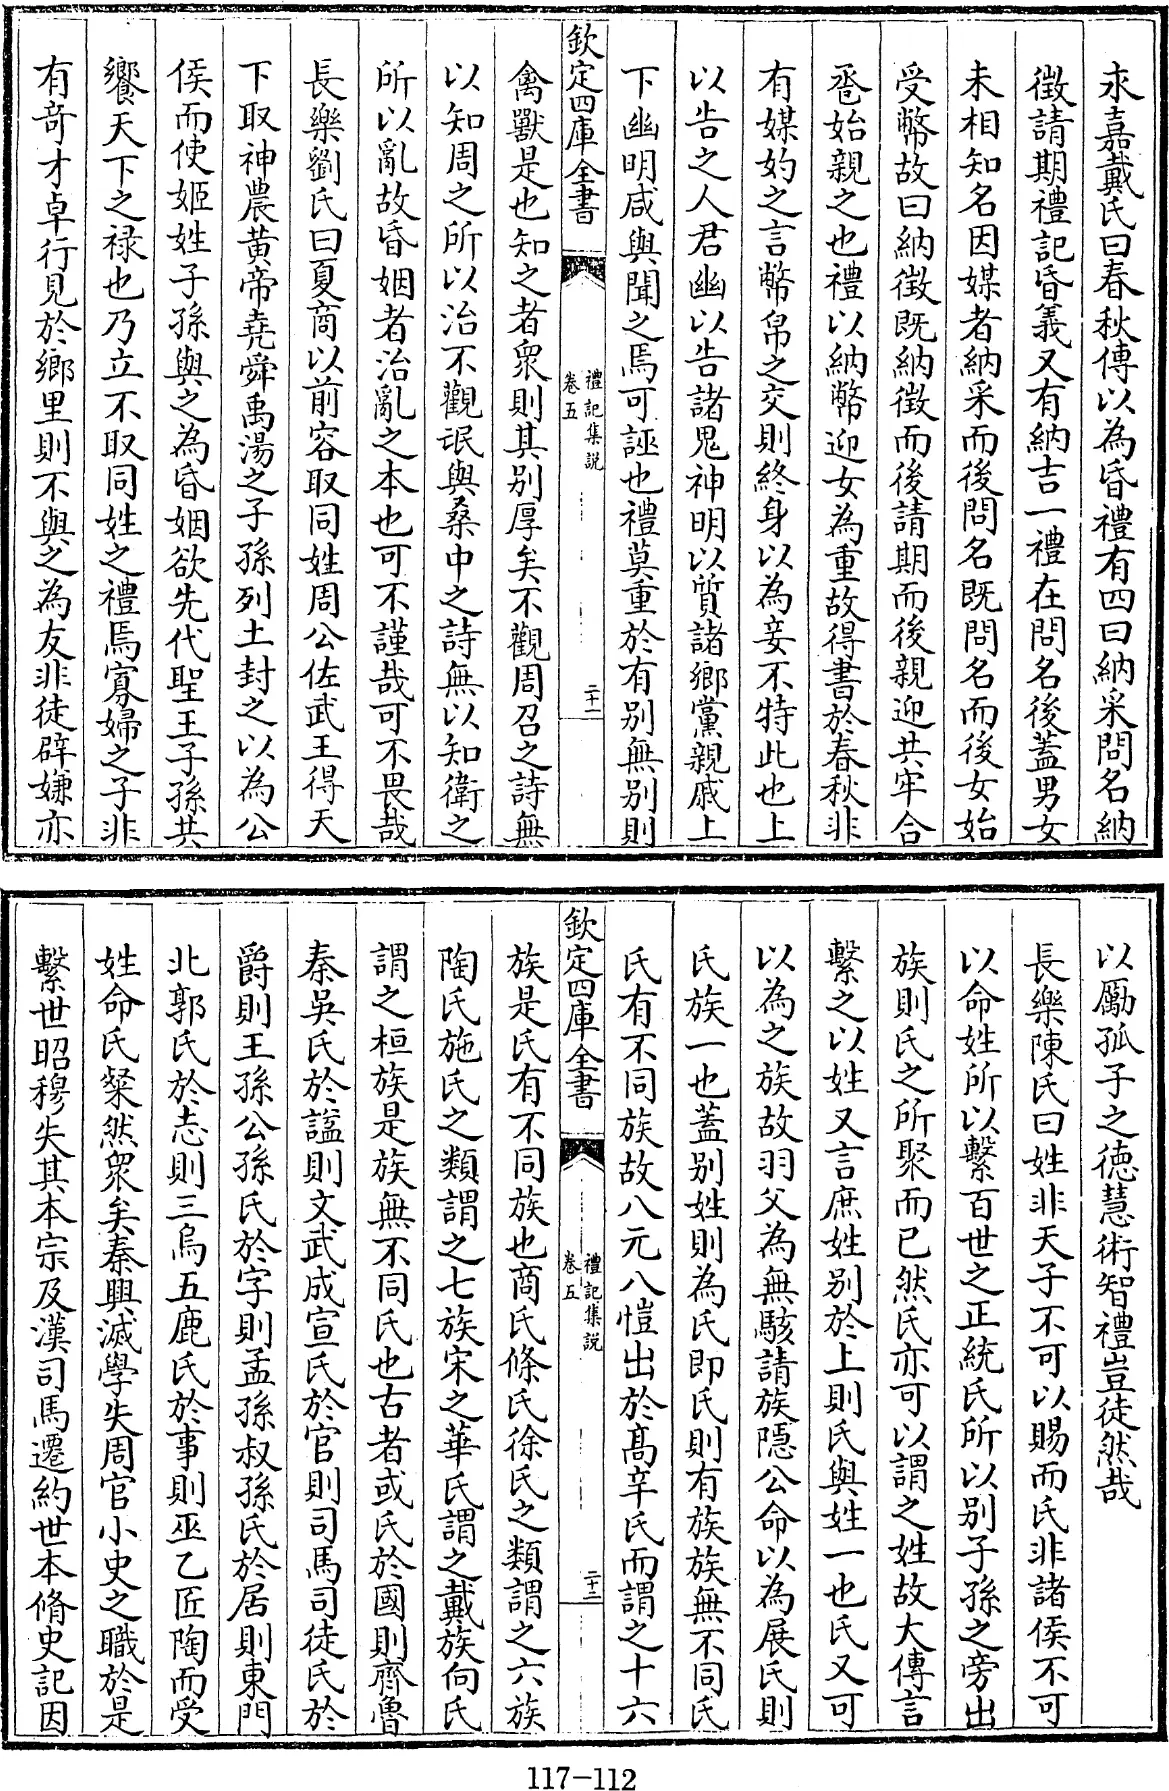 永嘉戴氏曰春秋傳以為昏禮有四曰納采問名納
徵請期禮記昏義又有納吉一禮在問名後蓋男女
未相知名因媒者納采而後問名既問名而後女始
受幣故曰納徵既納徵而後請期而後親迎共牢合
巹始親之也禮以納幣迎女為重故得書於春秋非
有媒妁之言幣帛之交則終身以為妾不特此也上
以告之人君幽以告諸鬼神明以質諸鄉黨親戚上
下幽明咸與聞之焉可誣也禮莫重於有别無别則
欽定四庫全書
禮記集説
卷五
二十一
禽獸是也知之者衆則其别厚矣不觀周召之詩無
以知周之所以治不觀氓與桑中之詩無以知衛之
所以亂故昏姻者治亂之本也可不謹哉可不畏哉
長樂劉氏曰夏商以前容取同姓周公佐武王得天
下取神農黄帝堯舜禹湯之子孫列土封之以為公
侯而使姬姓子孫與之為昏姻欲先代聖王子孫共
饗天下之禄也乃立不取同姓之禮焉寡婦之子非
有竒才卓行見於鄉里則不與之為友非徒辟嫌亦
以勵孤子之徳慧術智禮豈徒然哉
長樂陳氏曰姓非天子不可以賜而氏非諸侯不可
以命姓所以繫百世之正統氏所以别子孫之旁出
族則氏之所聚而已然氏亦可以謂之姓故大傳言
繫之以姓又言庶姓别於上則氏與姓一也氏又可
以為之族故羽父為無駭請族隱公命以為展氏則
氏族一也蓋别姓則為氏即氏則有族族無不同氏
氏有不同族故八元八愷出於髙辛氏而謂之十六
欽定四庫全書
禮記集説
卷五
二十二
族是氏有不同族也商氏條氏徐氏之類謂之六族
陶氏施氏之類謂之七族宋之華氏謂之戴族向氏
謂之桓族是族無不同氏也古者或氏於國則齊魯
秦吳氏於諡則文武成宣氏於官則司馬司徒氏於
爵則王孫公孫氏於字則孟孫叔孫氏於居則東門
北郭氏於志則三烏五鹿氏於事則巫乙匠陶而受
姓命氏粲然衆矣秦興滅學失周官小史之職於是
繫世昭穆失其本宗及漢司馬遷約世本脩史記因
117-112